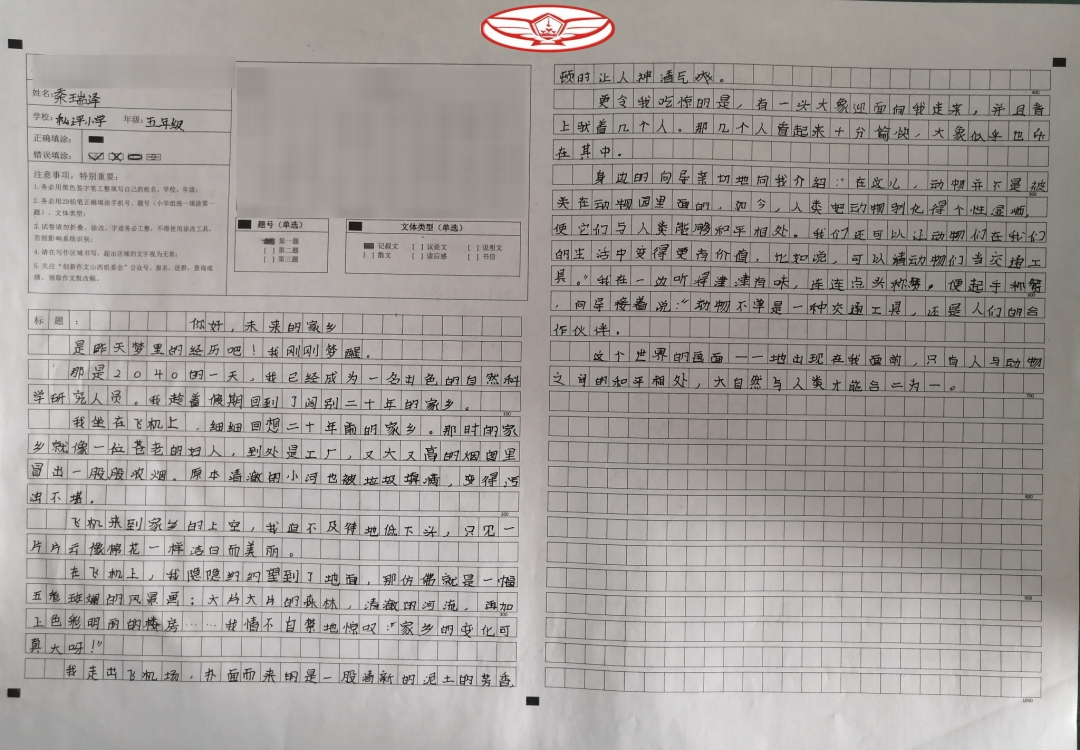 姓名:
学校: 私立坪小学 年级: 五年级
正确填涂:
错误填涂:
注意事项,特别重要:
1. 务必用黑色签字笔工整填写自己的姓名、学校、年级;
2. 务必用2B铅笔正确填涂手机号、题号(小学组统一填涂第一
题)、文体类型;
3. 试卷请勿折叠、涂改,字迹务必工整,不得使用涂改工具,
否则影响系统识别;
4. 请在写作区域书写,超出区域的文字视为无效;
题号(单选)
第一题
[ ] 第二题
[ ] 第三题
文体类型(单选)
记叙文 [ ] 议论文 [ ] 说明文
[ ] 散文 [ ] 读后感 [ ] 书信
标题: 你好,未来的家乡
是昨天梦里的经历吧!我刚刚梦醒。
那是2040的一天,我已经成为一名出色的自然科
学研究人员。我趁着假期回到了阔别二十年的家乡。
100
我坐在飞机上,细细回想二十年前的家乡。那时的家
乡就像一位苍老的妇人,到处是工厂,又大又高的烟囱里
冒出一股股浓烟。原本清澈的小河也被垃圾填满,变得污
浊不堪。
200
飞机来到家乡的上空,我迫不及待地低下头,只见一
片片云像棉花一样洁白而美丽。
在飞机上,我隐隐约约望到了地面,那仿佛就是一幅
五彩斑斓的风景画;大片大片的森林,清澈的河流,再加
上色彩明丽的楼房……我情不自禁地惊叹:“家乡的变化可
真大呀!”
我走出飞机场,扑面而来的是一股清新的泥土的芳香,
顿时让人神清气爽。
400
更令我吃惊的是,有一头大象迎面向我走来,并且背
上驮着几个人。那几个人看起来十分愉快,大象似乎也乐
在其中。
身边的向导亲切地向我介绍:“在这儿,动物并不是被
关在动物园里面的,如今,人类把动物驯化得个性温顺,
使它们与人类能够和平相处。我们还可以让动物们在我们
的生活中变得更有价值,比如说,可以请动物们当交通工
具。”我在一边听得津津有味,连连点头称赞。便起手称赞
,向导接着说:“动物不单是一种交通工具,还是人们的合
作伙伴。
这个世界的画面一一地出现在我面前,只有人与动物
之间的和平相处,大自然与人类才能合二为一。
700
800
900
1000